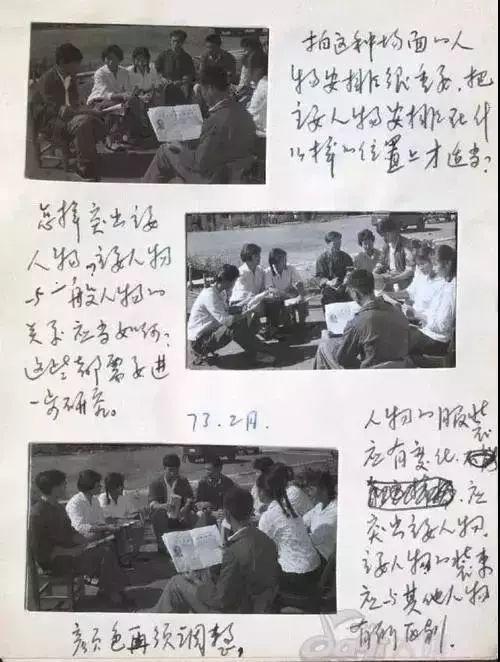 拍这种场面的人
物安排很重要.把
主要人物安排在什
么样的位置上才适当?
怎样突出主要
人物,主要人物
与一般人物的
关系应当如何?
这些都需要进
一步研究。
73.2月.
人物的服装
应有变化.
应
突出主要人物.
主要人物的装束
应与其他人物
有所区别.
颜色再须调整,